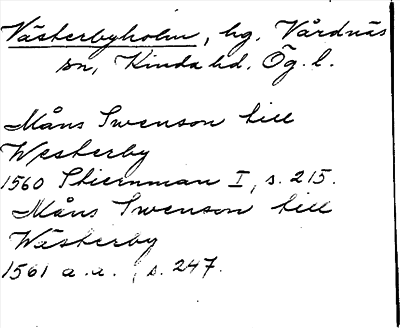 Västerbyholm, hg, Vårdnäs
sn, Kinda hd, Ög. l.
Måns Swenson till
Westerby
1560 Stiernman I, s. 215.
Måns Swenson till
Wästerby
1561 a.a. , s. 247.